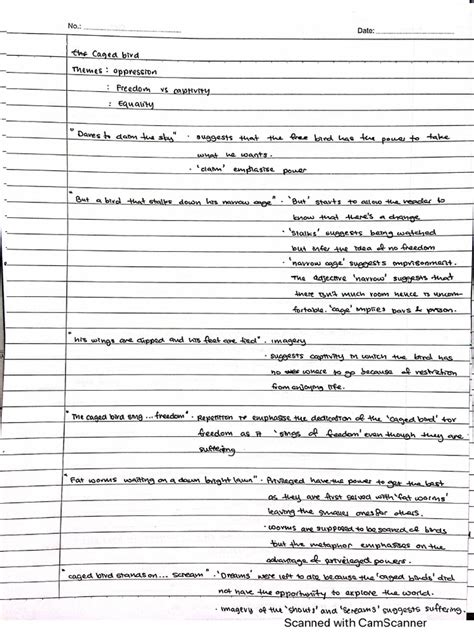 No.:
Date:
The Caged bird
Themes : oppression
: Freedom vs captivity
: Equality
"Dares to claim the sky" · suggests that the free bird has the power to take
what he wants.
· 'claim' emphasise power
"But a bird that stalks down his narrow cage" · 'But' starts to allow the reader to
know that there's a change
· 'stalks' suggests being watched
but infer the idea of no freedom
· 'narrow cage' suggests imprisonment.
The adjective 'narrow' suggests that
there isn't much room hence is uncom-
fortable. 'cage' implies bars & prison.
"his wings are clipped and his feet are tied" · imagery
· suggests captivity in which the bird has
no where to go because of restriction
from enjoying life.
"The caged bird sing ... freedom" · Repetition to emphasise the dedication of the 'caged bird' for
freedom as it 'sings of freedom' even though they are
suffering.
"Fat worms waiting on a dawn bright lawn" · Privileged have the power to get the best
as they are first served with 'fat worms'
leaving the smaller ones for others.
· worms are supposed to be scared of birds
but the metaphor emphasises on the
advantage of privelaged powers.
"caged bird stands on ... scream" · 'Dreams' were left to die because the 'caged birds' did
not have the opportunity to explore the world.
· imagery of the 'shouts' and 'screams' suggests suffering.
Scanned with CamScanner